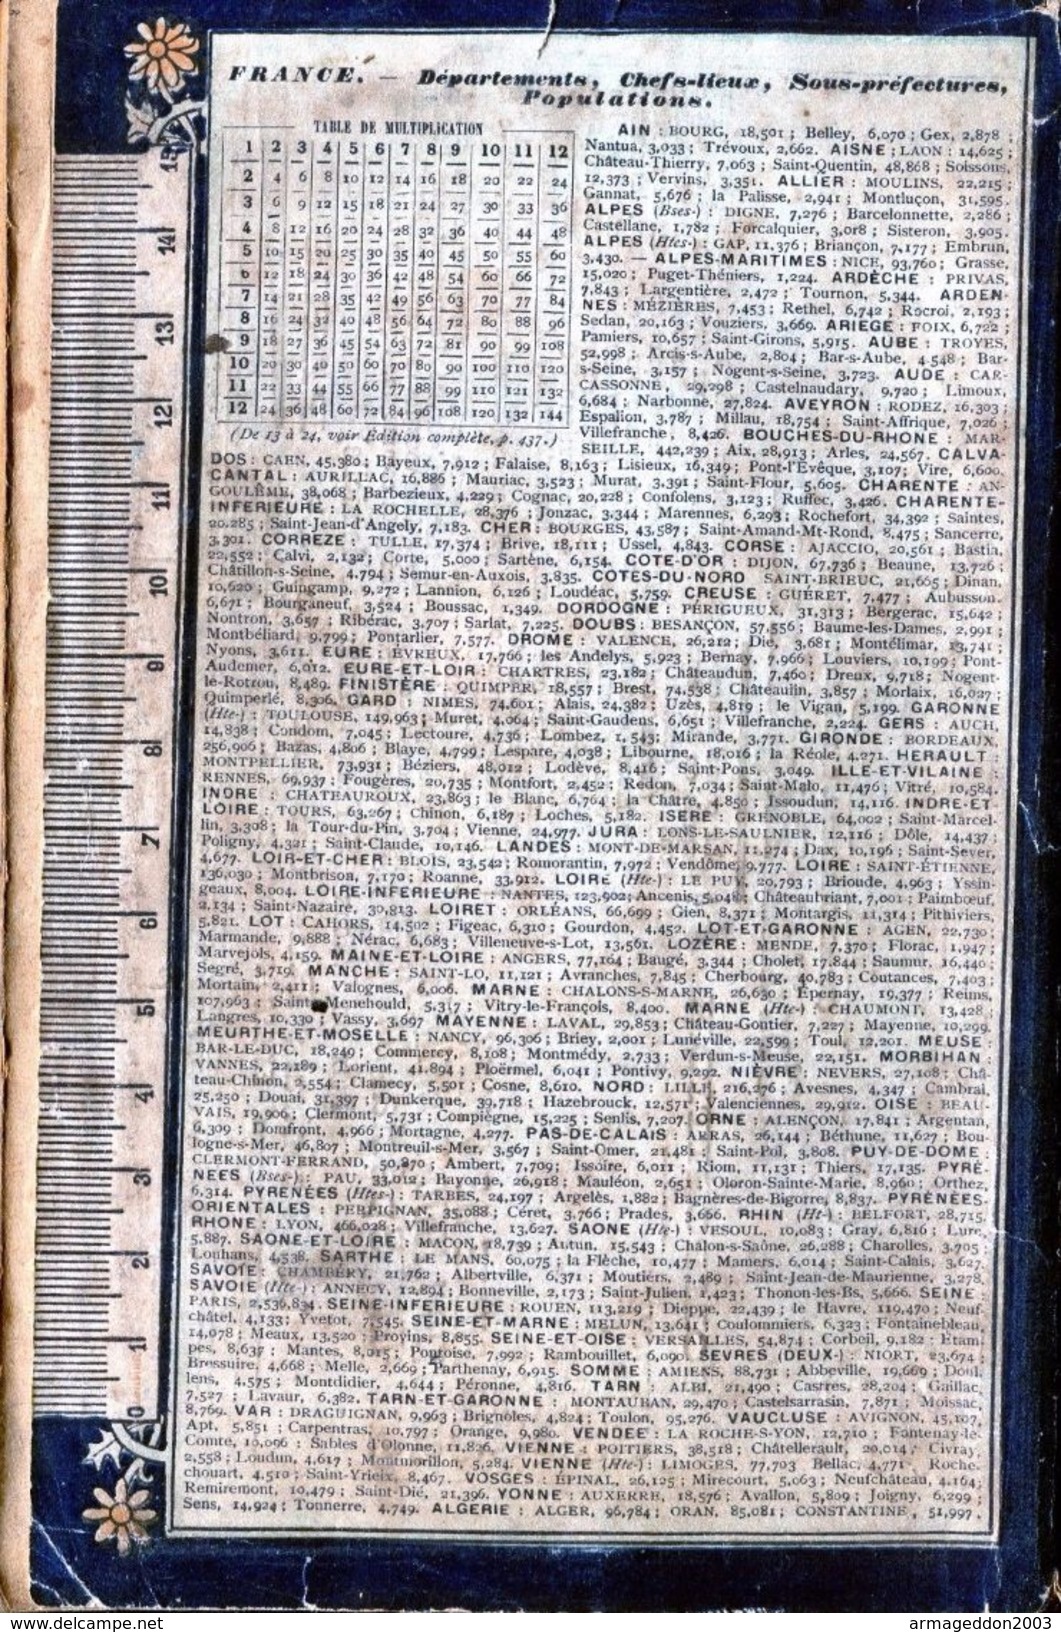 FRANCE. — Départements, Chefs-lieux, Sous-préfectures,
Populations.
TABLE DE MULTIPLICATION
1 2 3 4 5 6 7 8 9 10 11 12
2 4 6 8 10 12 14 16 18 20 22 24
3 6 9 12 15 18 21 24 27 30 33 36
4 8 12 16 20 24 28 32 36 40 44 48
5 10 15 20 25 30 35 40 45 50 55 60
6 12 18 24 30 36 42 48 54 60 66 72
7 14 21 28 35 42 49 56 63 70 77 84
8 16 24 32 40 48 56 64 72 80 88 96
9 18 27 36 45 54 63 72 81 90 99 108
10 20 30 40 50 60 70 80 90 100 110 120
11 22 33 44 55 66 77 88 99 110 121 132
12 24 36 48 60 72 84 96 108 120 132 144
(De 13 à 24, voir Édition complète, p. 437.)
AIN : BOURG, 18,501 ; Belley, 6,070 ; Gex, 2,878 ;
Nantua, 3,033 ; Trévoux, 2,662. AISNE : LAON : 14,625 ;
Château-Thierry, 7,063 ; Saint-Quentin, 48,868 ; Soissons,
12,373 ; Vervins, 3,351. ALLIER : MOULINS, 22,215 ;
Gannat, 5,676 ; la Palisse, 2,941 ; Montluçon, 31,595.
ALPES (Bses-) : DIGNE, 7,276 ; Barcelonnette, 2,286 ;
Castellane, 1,782 ; Forcalquier, 3,018 ; Sisteron, 3,905.
ALPES (Htes-) : GAP, 11,376 ; Briançon, 7,177 ; Embrun,
3,430. — ALPES-MARITIMES : NICE, 93,760 ; Grasse,
15,020 ; Puget-Théniers, 1,224. ARDÈCHE : PRIVAS,
7,843 ; Largentière, 2,472 ; Tournon, 5,344. ARDEN-
NES : MÉZIÈRES, 7,453 ; Rethel, 6,742 ; Rocroi, 2,193 ;
Sedan, 20,163 ; Vouziers, 3,669. ARIEGE : FOIX, 6,722 ;
Pamiers, 10,657 ; Saint-Girons, 5,915. AUBE : TROYES,
52,998 ; Arcis-s-Aube, 2,804 ; Bar-s-Aube, 4,548 ; Bar-
s-Seine, 3,157 ; Nogent-s-Seine, 3,723. AUDE : CAR-
CASSONNE, 29,298 ; Castelnaudary, 9,720 ; Limoux,
6,684 ; Narbonne, 27,824. AVEYRON : RODEZ, 16,303 ;
Espalion, 3,787 ; Millau, 18,754 ; Saint-Affrique, 7,026 ;
Villefranche, 8,426. BOUCHES-DU-RHONE : MAR-
SEILLE, 442,239 ; Aix, 28,913 ; Arles, 24,567. CALVA-
DOS : CAEN, 45,380 ; Bayeux, 7,912 ; Falaise, 8,163 ; Lisieux, 16,349 ; Pont-l'Evêque, 3,107 ; Vire, 6,600.
CANTAL : AURILLAC, 16,886 ; Mauriac, 3,523 ; Murat, 3,391 ; Saint-Flour, 5,605. CHARENTE : AN-
GOULÊME, 38,068 ; Barbezieux, 4,229 ; Cognac, 20,228 ; Confolens, 3,123 ; Ruffec, 3,426. CHARENTE-
INFERIEURE : LA ROCHELLE, 28,376 ; Jonzac, 3,344 ; Marennes, 6,293 ; Rochefort, 34,392 ; Saintes,
20,285 ; Saint-Jean-d'Angely, 7,183. CHER : BOURGES, 43,587 ; Saint-Amand-Mt-Rond, 8,475 ; Sancerre,
3,301. CORREZE : TULLE, 17,374 ; Brive, 18,111 ; Ussel, 4,843. CORSE : AJACCIO, 20,561 ; Bastia,
22,552 ; Calvi, 2,132 ; Corte, 5,000 ; Sartène, 6,154. COTE-D'OR : DIJON, 67,736 ; Beaune, 13,726 ;
Châtillon-s-Seine, 4,794 ; Semur-en-Auxois, 3,835. COTES-DU-NORD SAINT-BRIEUC, 21,665 ; Dinan,
10,620 ; Guingamp, 9,272 ; Lannion, 6,126 ; Loudéac, 5,759. CREUSE : GUÉRET, 7,477 ; Aubusson,
6,671 ; Bourganeuf, 3,524 ; Boussac, 1,349. DORDOGNE : PÉRIGUEUX, 31,313 ; Bergerac, 15,642 ;
Nontron, 3,657 ; Ribérac, 3,707 ; Sarlat, 7,225. DOUBS : BESANÇON, 57,556 ; Baume-les-Dames, 2,991 ;
Montbéliard, 9,799 ; Pontarlier, 7,577. DROME : VALENCE, 26,212 ; Die, 3,681 ; Montélimar, 13,741 ;
Nyons, 3,611. EURE : ÉVREUX, 17,766 ; les Andelys, 5,923 ; Bernay, 7,966 ; Louviers, 10,199 ; Pont-
Audemer, 6,012. EURE-ET-LOIR : CHARTRES, 23,182 ; Châteaudun, 7,460 ; Dreux, 9,718 ; Nogent-
le-Rotrou, 8,489. FINISTÈRE : QUIMPER, 18,557 ; Brest, 74,538 ; Châteaulin, 3,857 ; Morlaix, 16,027 ;
Quimperlé, 8,306. GARD : NIMES, 74,601 ; Alais, 24,382 ; Uzès, 4,819 ; le Vigan, 5,199. GARONNE
(Hte-) : TOULOUSE, 149,963 ; Muret, 4,064 ; Saint-Gaudens, 6,651 ; Villefranche, 2,224. GERS : AUCH,
14,838 ; Condom, 7,045 ; Lectoure, 4,736 ; Lombez, 1,543 ; Mirande, 3,771. GIRONDE : BORDEAUX,
256,906 ; Bazas, 4,806 ; Blaye, 4,799 ; Lespare, 4,038 ; Libourne, 18,016 ; la Réole, 4,271. HERAULT :
MONTPELLIER, 73,931 ; Béziers, 48,012 ; Lodève, 8,416 ; Saint-Pons, 3,049. ILLE-ET-VILAINE :
RENNES, 69,937 ; Fougères, 20,735 ; Montfort, 2,452 ; Redon, 7,034 ; Saint-Malo, 11,476 ; Vitré, 10,584.
INDRE : CHATEAUROUX, 23,863 ; le Blanc, 6,764 ; la Châtre, 4,850 ; Issoudun, 14,116. INDRE-ET-
LOIRE : TOURS, 63,267 ; Chinon, 6,187 ; Loches, 5,182. ISERE : GRENOBLE, 64,002 ; Saint-Marcel-
lin, 3,308 ; la Tour-du-Pin, 3,704 ; Vienne, 24,977. JURA : LONS-LE-SAULNIER, 12,116 ; Dôle, 14,437 ;
Poligny, 4,321 ; Saint-Claude, 10,146. LANDES : MONT-DE-MARSAN, 11,274 ; Dax, 10,196 ; Saint-Sever,
4,677. LOIR-ET-CHER : BLOIS, 23,542 ; Romorantin, 7,972 ; Vendôme, 9,777. LOIRE : SAINT-ÉTIENNE,
136,030 ; Montbrison, 7,170 ; Roanne, 33,912. LOIRE (Hte-) : LE PUY, 20,793 ; Brioude, 4,963 ; Yssin-
geaux, 8,004. LOIRE-INFERIEURE : NANTES, 123,902 ; Ancenis, 5,048 ; Châteaubriant, 7,001 ; Paimbœuf,
2,134 ; Saint-Nazaire, 30,813. LOIRET : ORLÉANS, 66,699 ; Gien, 8,371 ; Montargis, 11,314 ; Pithiviers,
5,821. LOT : CAHORS, 14,502 ; Figeac, 6,310 ; Gourdon, 4,452. LOT-ET-GARONNE : AGEN, 22,730 ;
Marmande, 9,888 ; Nérac, 6,683 ; Villeneuve-s-Lot, 13,561. LOZÈRE : MENDE, 7,370 ; Florac, 1,947 ;
Marvejols, 4,159. MAINE-ET-LOIRE : ANGERS, 77,164 ; Baugé, 3,344 ; Cholet, 17,844 ; Saumur, 16,440 ;
Segré, 3,719. MANCHE : SAINT-LO, 11,121 ; Avranches, 7,845 ; Cherbourg, 40,783 ; Coutances, 7,403 ;
Mortain, 2,411 ; Valognes, 6,006. MARNE : CHALONS-S-MARNE, 26,630 ; Épernay, 19,377 ; Reims,
107,963 ; Sainte Menehould, 5,317 ; Vitry-le-François, 8,400. MARNE (Hte-) : CHAUMONT, 13,428 ;
Langres, 10,330 ; Vassy, 3,697 MAYENNE : LAVAL, 29,853 ; Château-Gontier, 7,227 ; Mayenne, 10,299.
MEURTHE-ET-MOSELLE : NANCY, 96,306 ; Briey, 2,001 ; Lunéville, 22,599 ; Toul, 12,201. MEUSE :
BAR-LE-DUC, 18,249 ; Commercy, 8,108 ; Montmédy, 2,733 ; Verdun-s-Meuse, 22,151. MORBIHAN :
VANNES, 22,189 ; Lorient, 41,894 ; Ploërmel, 6,041 ; Pontivy, 9,292. NIÈVRE : NEVERS, 27,108 ; Châ-
teau-Chinon, 2,554 ; Clamecy, 5,501 ; Cosne, 8,610. NORD : LILLE, 216,276 ; Avesnes, 4,347 ; Cambrai,
25,250 ; Douai, 31,397 ; Dunkerque, 39,718 ; Hazebrouck, 12,571 ; Valenciennes, 29,912. OISE : BEAU-
VAIS, 19,906 ; Clermont, 5,731 ; Compiègne, 15,225 ; Senlis, 7,207. ORNE : ALENÇON, 17,841 ; Argentan,
6,309 ; Domfront, 4,966 ; Mortagne, 4,277. PAS-DE-CALAIS : ARRAS, 26,144 ; Béthune, 11,627 ; Bou-
logne-s-Mer, 46,807 ; Montreuil-s-Mer, 3,567 ; Saint-Omer, 21,481 ; Saint-Pol, 3,808. PUY-DE-DOME :
CLERMONT-FERRAND, 50,870 ; Ambert, 7,709 ; Issoire, 6,011 ; Riom, 11,131 ; Thiers, 17,135. PYRÉ-
NEES (Bses-) : PAU, 33,012 ; Bayonne, 26,918 ; Mauléon, 2,651 ; Oloron-Sainte-Marie, 8,960 ; Orthez,
6,314. PYRENÉES (Htes-) : TARBES, 24,197 ; Argelès, 1,882 ; Bagnères-de-Bigorre, 8,837. PYRÉNÉES-
ORIENTALES : PERPIGNAN, 35,088 ; Céret, 3,766 ; Prades, 3,666. RHIN (Ht-) : BELFORT, 28,715.
RHONE : LYON, 466,028 ; Villefranche, 13,627. SAONE (Hte-) : VESOUL, 10,083 ; Gray, 6,816 ; Lure,
5,887. SAONE-ET-LOIRE : MACON, 18,739 ; Autun, 15,543 ; Chalon-s-Saône, 26,288 ; Charolles, 3,705 ;
Louhans, 4,538. SARTHE : LE MANS, 60,075 ; la Flèche, 10,477 ; Mamers, 6,014 ; Saint-Calais, 3,627.
SAVOIE : CHAMBÉRY, 21,762 ; Albertville, 6,371 ; Moutiers, 2,489 ; Saint-Jean-de-Maurienne, 3,278.
SAVOIE (Hte-) : ANNECY, 12,894 ; Bonneville, 2,173 ; Saint-Julien, 1,423 ; Thonon-les-Bs, 5,666. SEINE :
PARIS, 2,536,834. SEINE-INFERIEURE : ROUEN, 113,219 ; Dieppe, 22,439 ; le Havre, 119,470 ; Neuf-
châtel, 4,133 ; Yvetot, 7,545. SEINE-ET-MARNE : MELUN, 13,641 ; Coulommiers, 6,323 ; Fontainebleau,
14,078 ; Meaux, 13,520 ; Provins, 8,855. SEINE-ET-OISE : VERSAILLES, 54,874 ; Corbeil, 9,182 ; Étam-
pes, 8,637 ; Mantes, 8,015 ; Pontoise, 7,992 ; Rambouillet, 6,090. SEVRES (DEUX-) : NIORT, 23,674 ;
Bressuire, 4,668 ; Melle, 2,669 ; Parthenay, 6,915. SOMME : AMIENS, 88,731 ; Abbeville, 19,669 ; Doul,
lens, 4,575 ; Montdidier, 4,644 ; Péronne, 4,816. TARN : ALBI, 21,490 ; Castres, 28,204 ; Gaillac,
7,527 ; Lavaur, 6,382. TARN-ET-GARONNE : MONTAUBAN, 29,470 ; Castelsarrasin, 7,871 ; Moissac,
8,769. VAR : DRAGUIGNAN, 9,963 ; Brignoles, 4,824 ; Toulon, 95,276. VAUCLUSE : AVIGNON, 45,107,
Apt, 5,851 ; Carpentras, 10,797 ; Orange, 9,980. VENDEE : LA ROCHE-S-YON, 12,710 ; Fontenay-le-
Comte, 10,096 : Sables d'Olonne, 11,826. VIENNE : POITIERS, 38,518 ; Châtellerault, 20,014 ; Civray,
2,558 ; Loudun, 4,617 ; Montmorillon, 5,284. VIENNE (Hte-) : LIMOGES, 77,703 Bellac, 4,771 ; Roche-
chouart, 4,510 ; Saint-Yrieix, 8,467. VOSGES : ÉPINAL, 26,125 ; Mirecourt, 5,063 ; Neufchâteau, 4,164 ;
Remiremont, 10,479 ; Saint-Dié, 21,396. YONNE : AUXERRE, 18,576 ; Avallon, 5,809 ; Joigny, 6,299 ;
Sens, 14,924 ; Tonnerre, 4,749. ALGERIE : ALGER, 96,784 ; ORAN, 85,081 ; CONSTANTINE, 51,997.
15
14
13
12
11
10
9
8
7
6
5
4
3
2
1
0
www.delcampe.net
armageddon2003